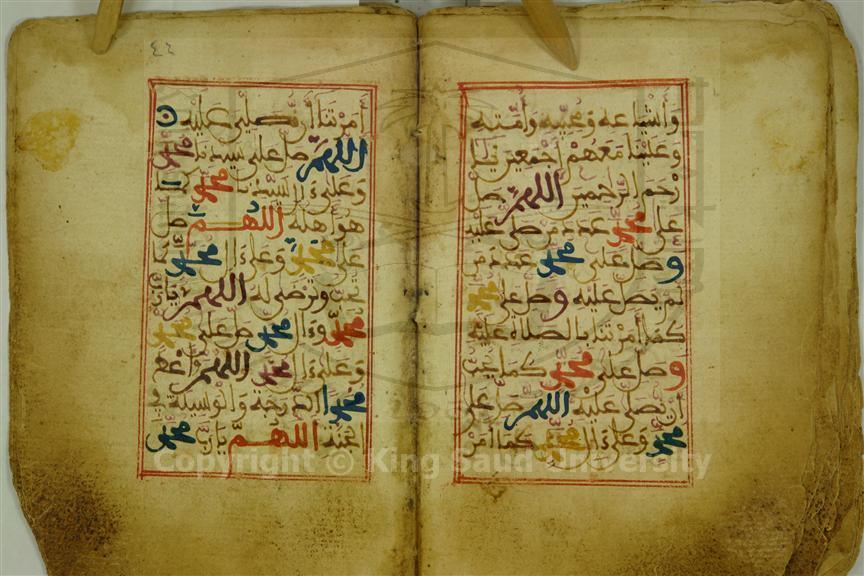 وأشياعه ومحبيه وأمته
وعلينا معهم أجمعين يا
رحم الراحمين اللهم صل
على محمد عدد من صلى عليه
وصل على محمد عدد من
لم يصل عليه وصل على محمد
كما أمرتنا بالصلاة عليه
وصل على محمد كما يحب
أن يصلى عليه اللهم صل على
محمد وعلى ال محمد كما أمر
أمرتنا أن نصلي عليه
اللهم صل على سيدنا محمد
وعلى ال سيدنا محمد كما
هو أهله اللهم صل
على محمد وعلى ال محمد كما
تحب وترضى له اللهم يا رب
محمد وءال محمد صل على محمد
وعلى ءال محمد اللهم وأعط
محمدا الدرجة والوسيلة في
الجنة اللهم يا رب محمد
٤٢
Copyright © King Saud University